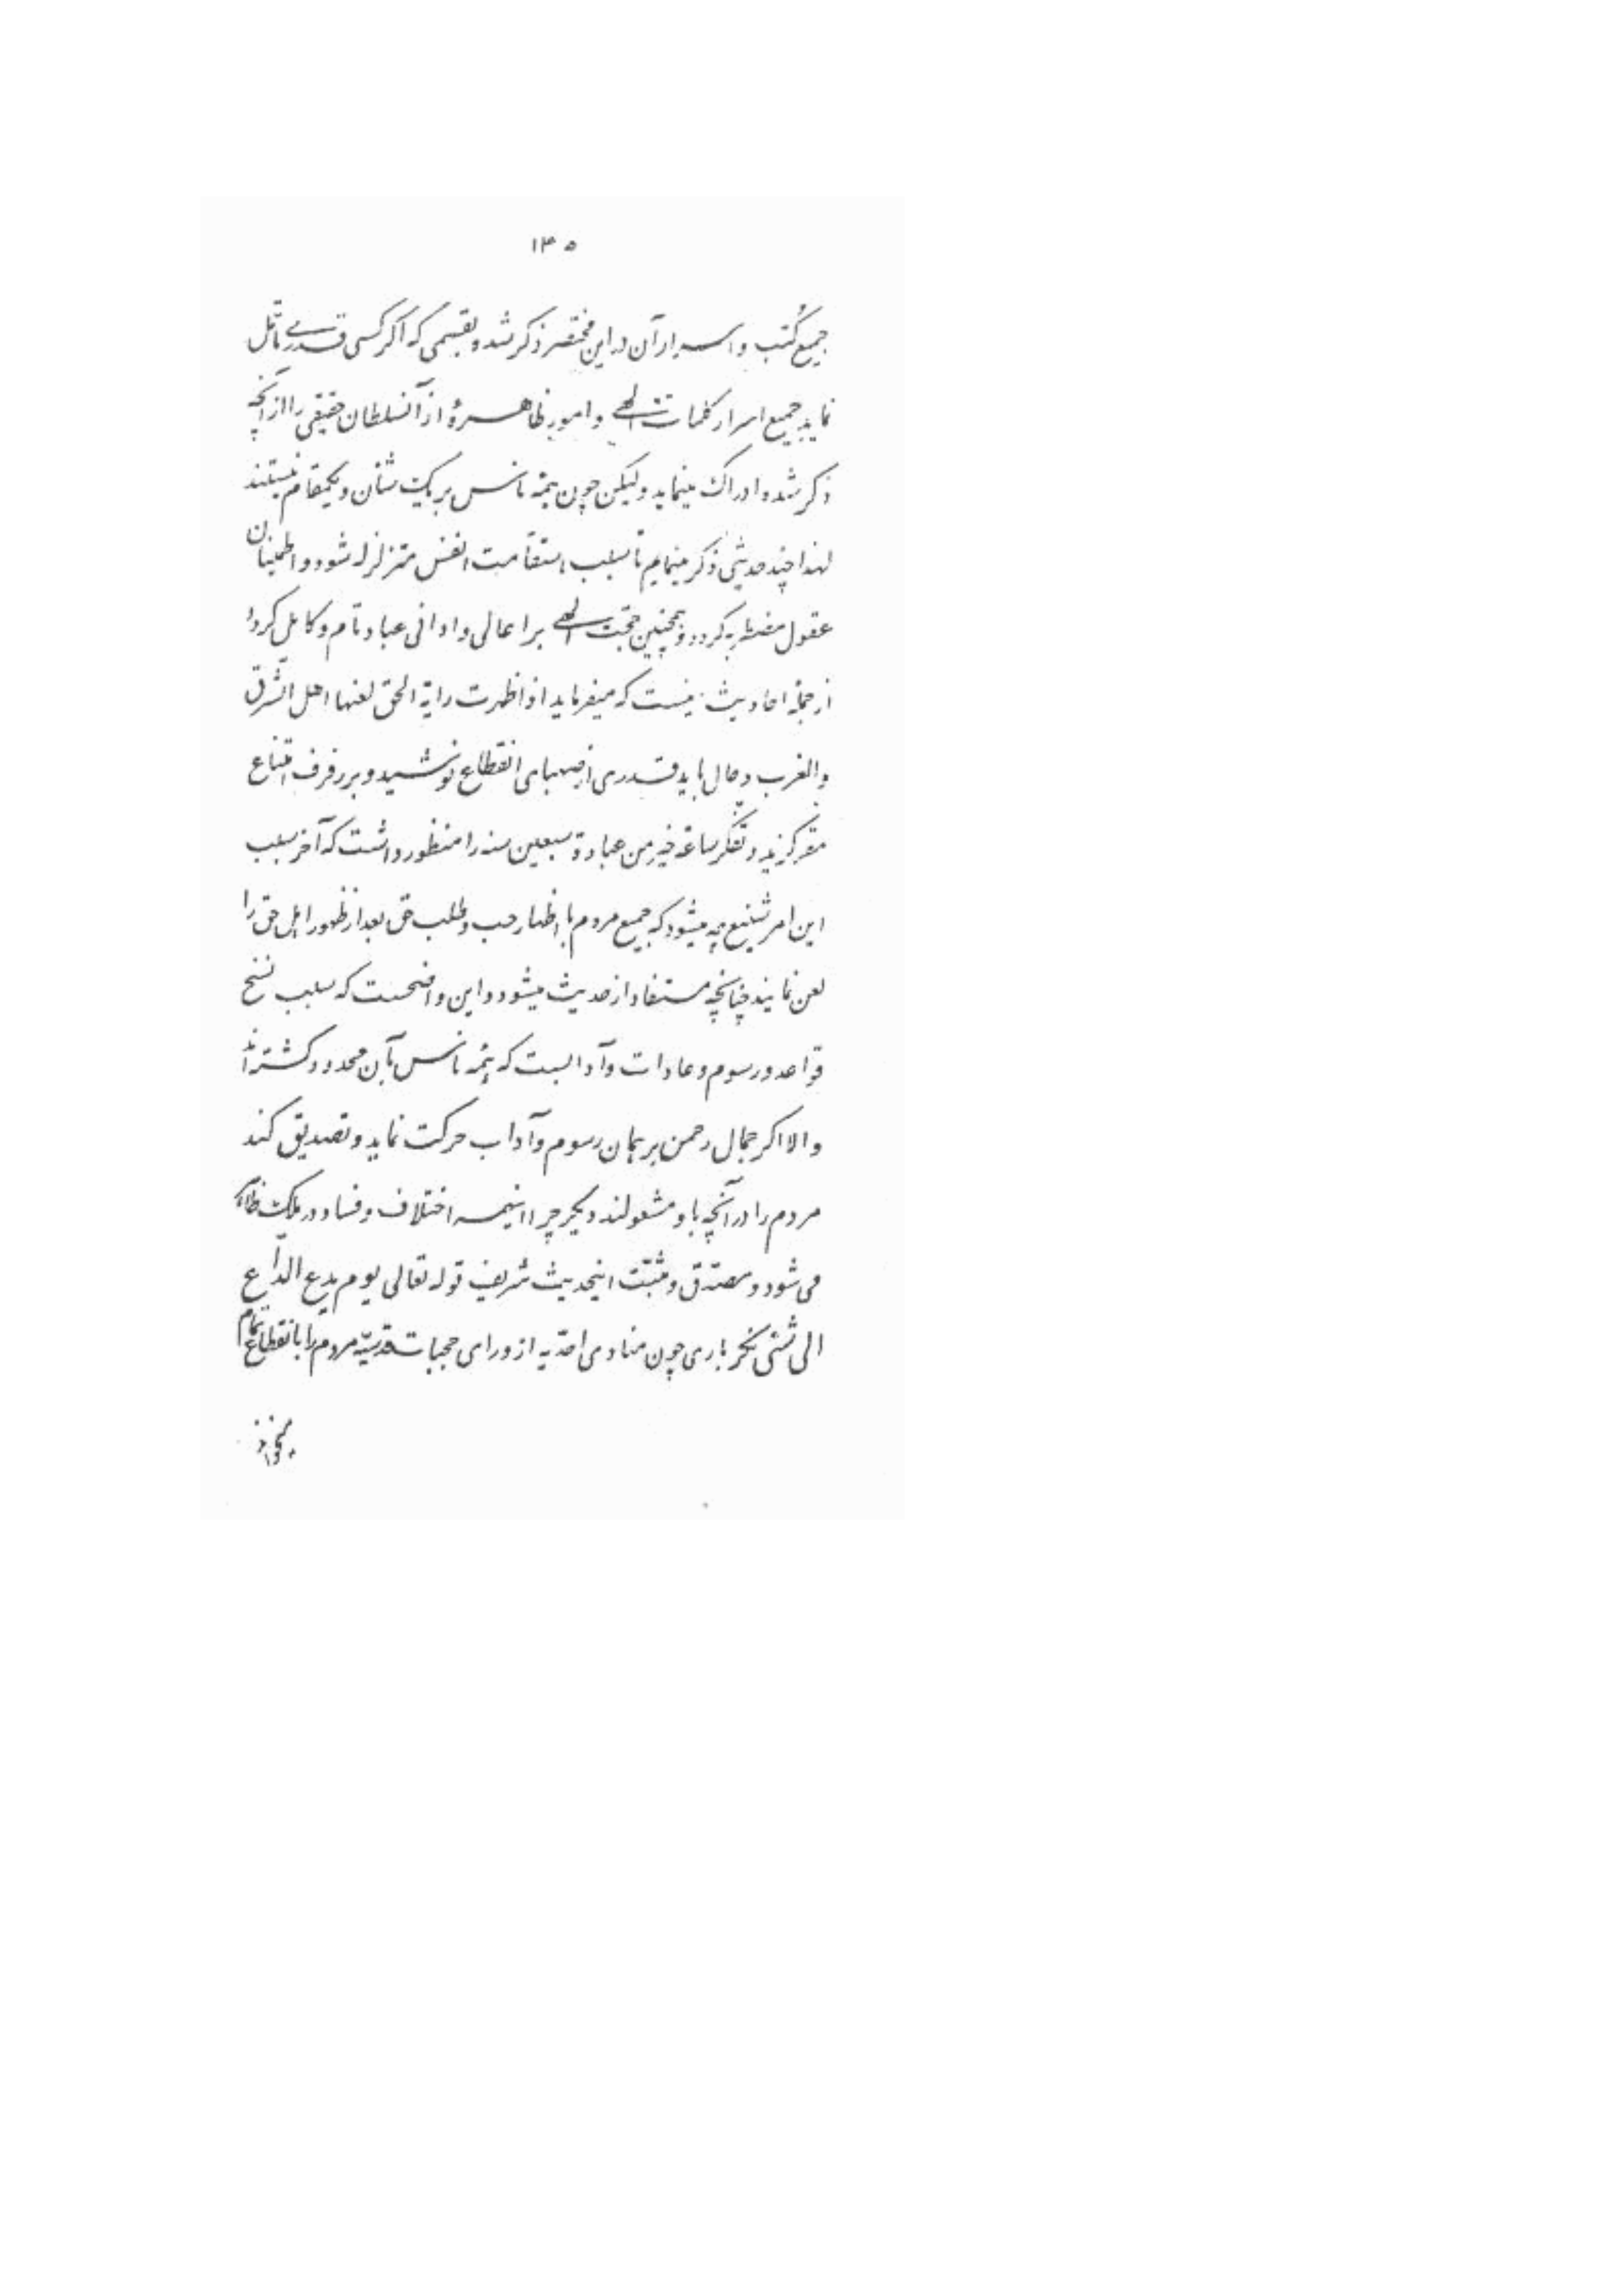 ۱۳۵
جمیع کُتب و اسرار آن در این مختصر ذکر شد و بقسمی که اگر کسی قدری تأمّل
نماید جمیع اسرار کلمات الهی و امور ظاهرهٔ از آنسلطان حقیقی را از آنچه
ذکر شده ادراک مینماید ولیکن چون همهٔ ناس بر یک شأن و یکمقام نیستند
لهذا چند حدیثی ذکر مینمایم تا سبب استقامت انفس متزلزله شود و اطمینان
عقول مضطربه گردد و همچنین حجّت الهی بر اعالی و ادانی عباد تامّ و کامل گردد
از جملهٔ احادیث اینست که میفرماید اذا ظهرت رایة الحق لعنها اهل الشّرق
و الغرب و حال باید قدری از صهبای انقطاع نوشید و بر رفرف امتناع
مقر گزید و تفکّر ساعة خیر من عبادة سبعین سنه را منظور داشت که آخر سبب
این امر شنیع چه میشود که جمیع مردم با اظهار حب و طلب حق بعد از ظهور اهل حق را
لعن نمایند چنانچه مستفاد از حدیث میشود و این واضحست که سبب نسخ
قواعد و رسوم و عادات و آدابیست که همهٔ ناس بآن محدود گشته‌اند
و الا اگر جمال رحمن بر همان رسوم و آداب حرکت نماید و تصدیق کند
مردم را در آنچه باو مشغولند دیگر چرا اینهمه اختلاف و فساد در ملک ظاهر
می‌شود و مصدّق و مثبت اینحدیث شریف قوله تعالی یوم یدع الدّاع
الی شئی نکر باری چون منادی احدّیه از ورای حجبات قدسیّه مردم را بانقطاع تمام
میخواند